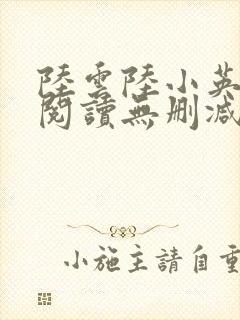 陸雲陸小英
閱讀無刪減
小施主請自重